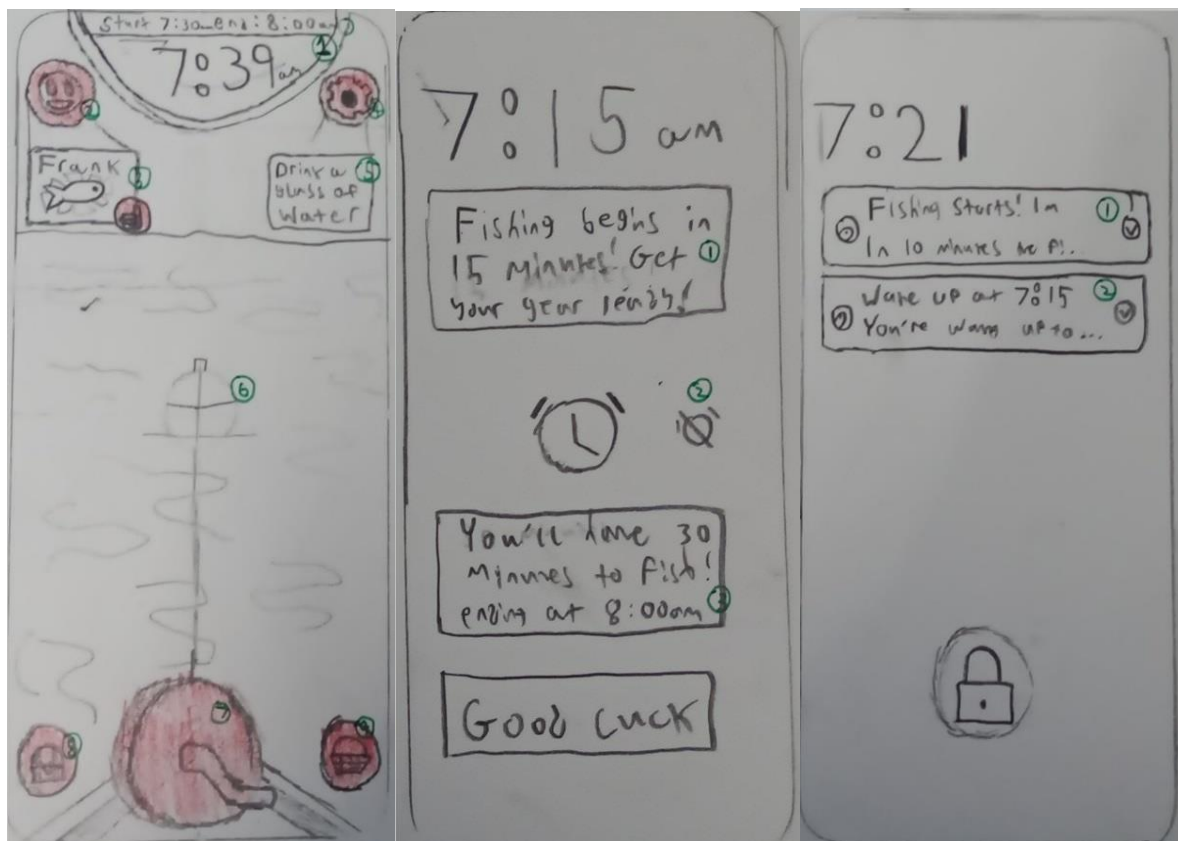 Start 7:30am end: 8:00am
1
7:39 am
2
4
Frank
3
Drink a
glass of
water
5
6
7
8
9
7:15 am
Fishing begins in
15 minutes! Get
your gear ready!
1
2
You'll have 30
minutes to fish!
ending at 8:00am
3
Good Luck
7:21
Fishing Starts! In
1
In 10 minutes the fi..
Wake up at 7:15
2
You're wang up to...